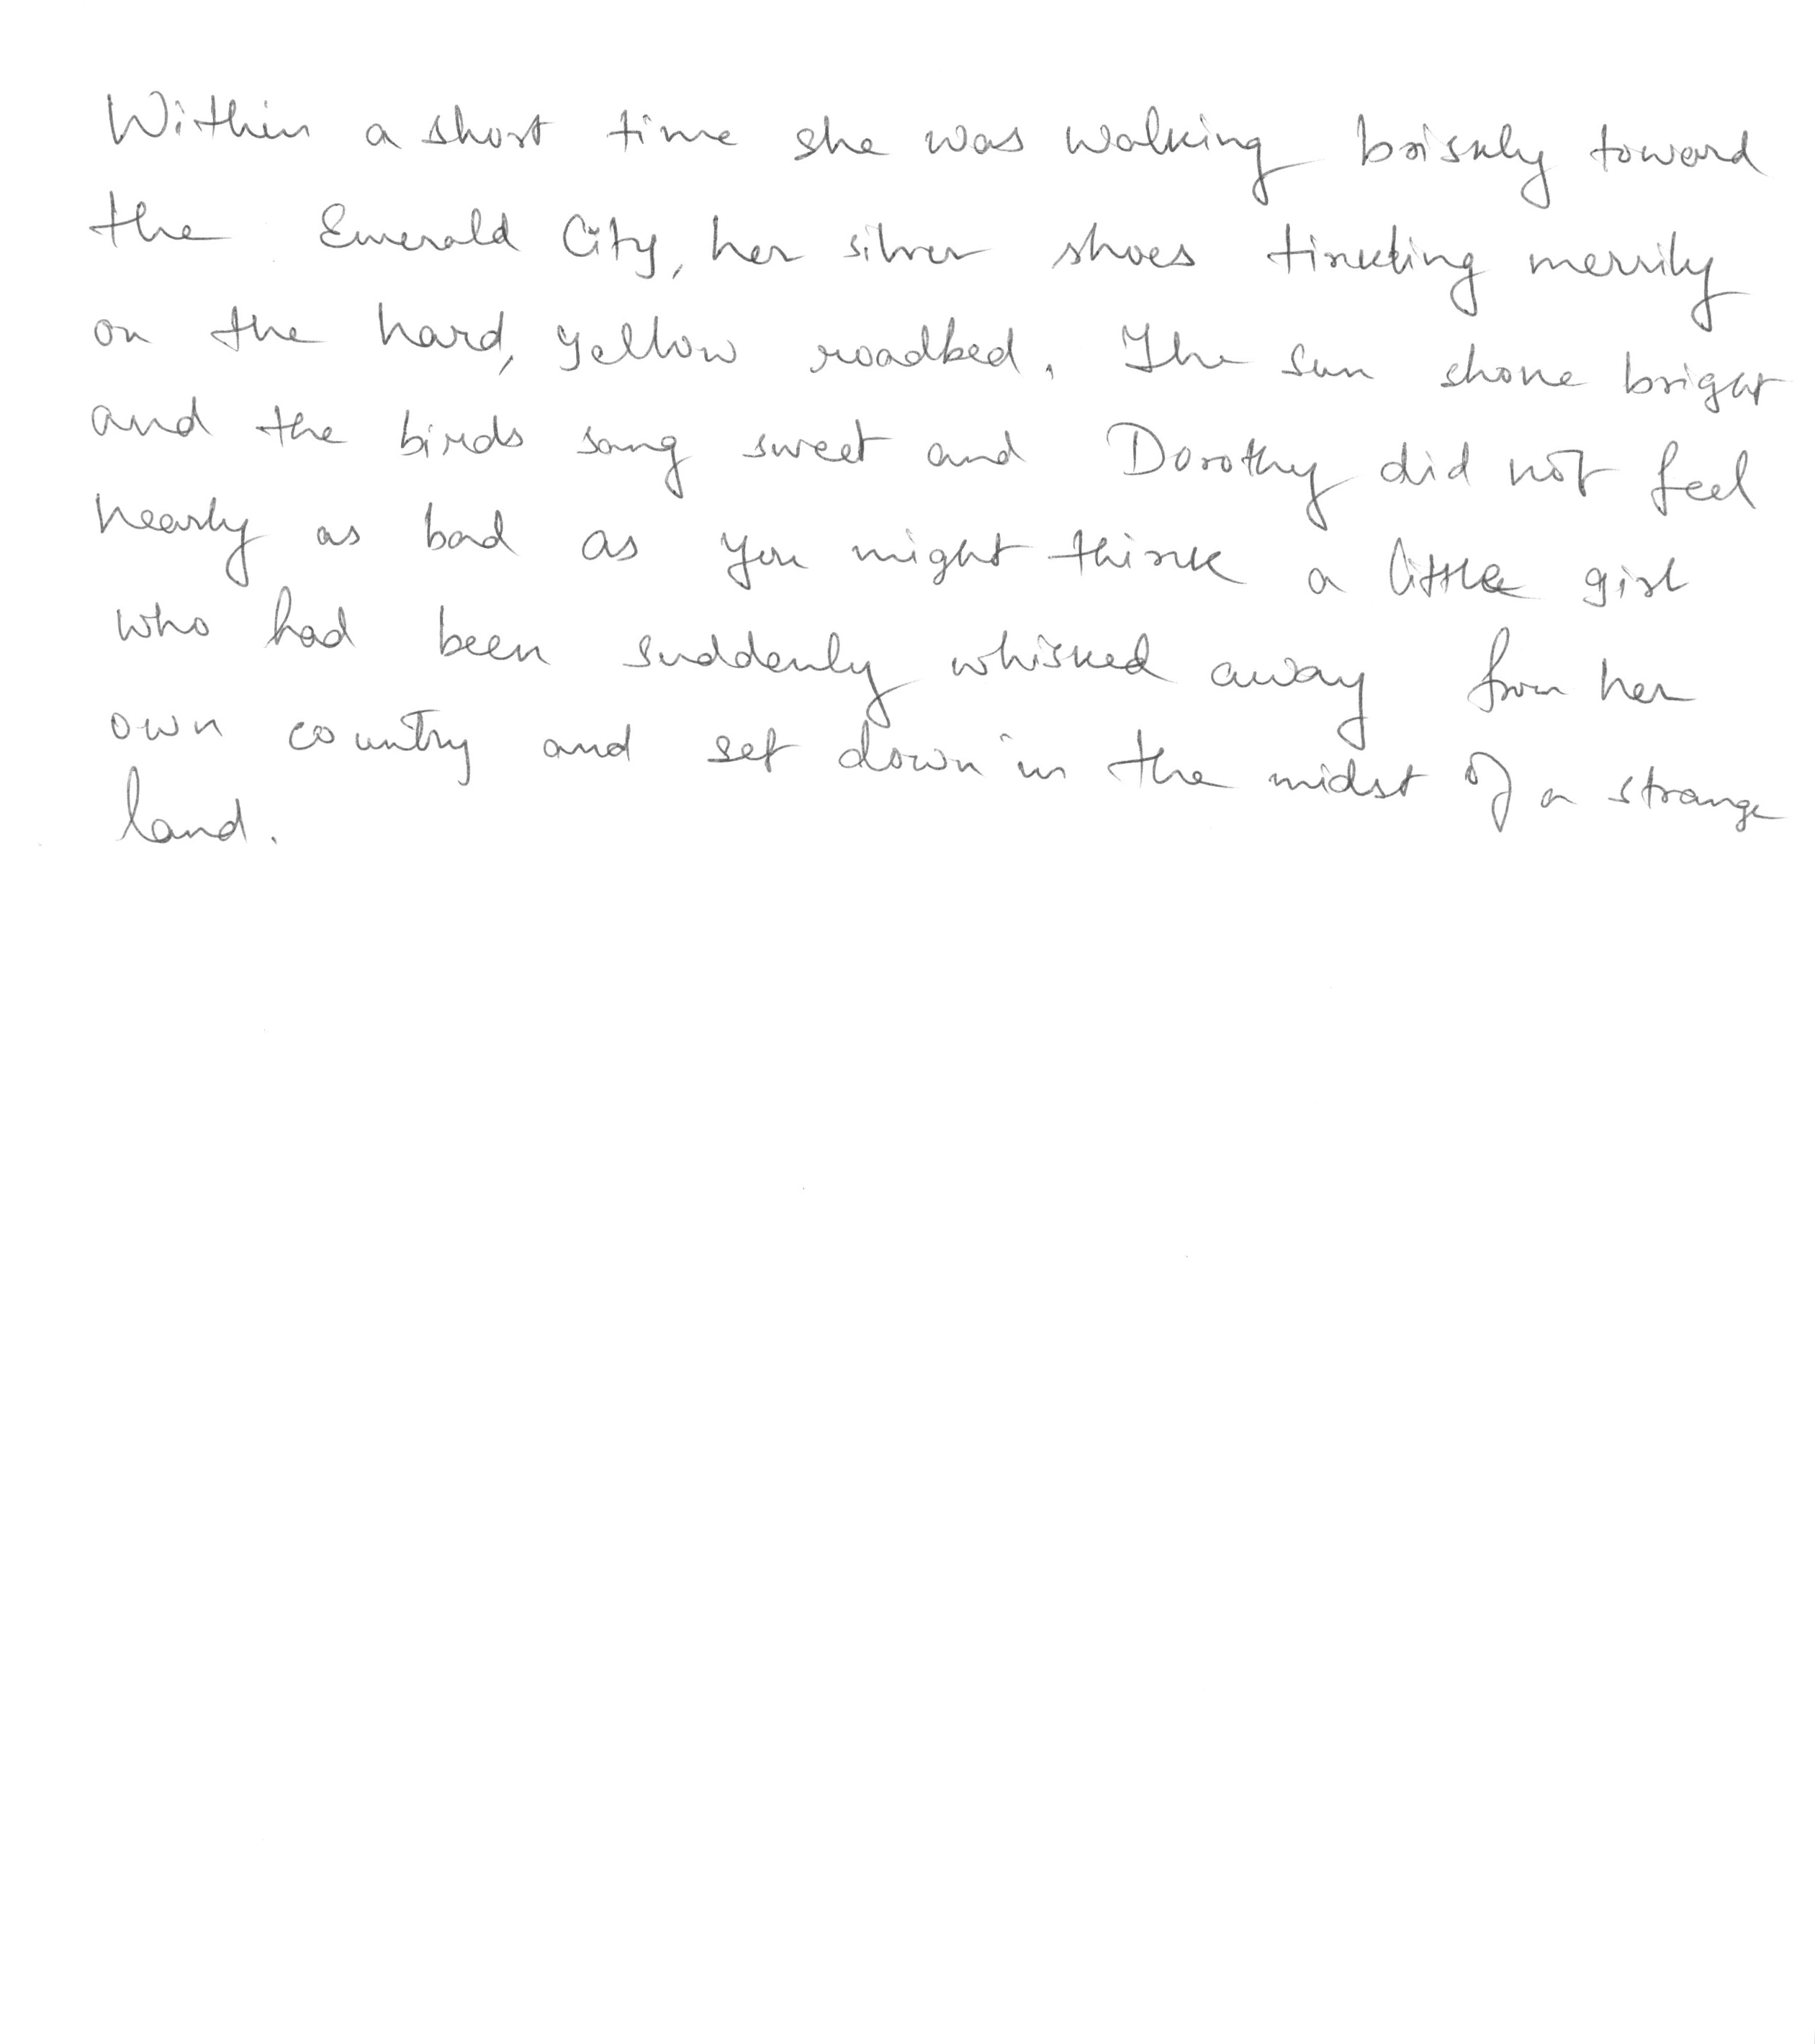 Within a short time she was walking briskly toward
the Emerald City, her silver shoes tinkling merrily
on the hard, yellow roadbed. The sun shone bright
and the birds sang sweet and Dorothy did not feel
nearly as bad as you might think a little girl
who had been suddenly whisked away from her
own country and set down in the midst of a strange
land.